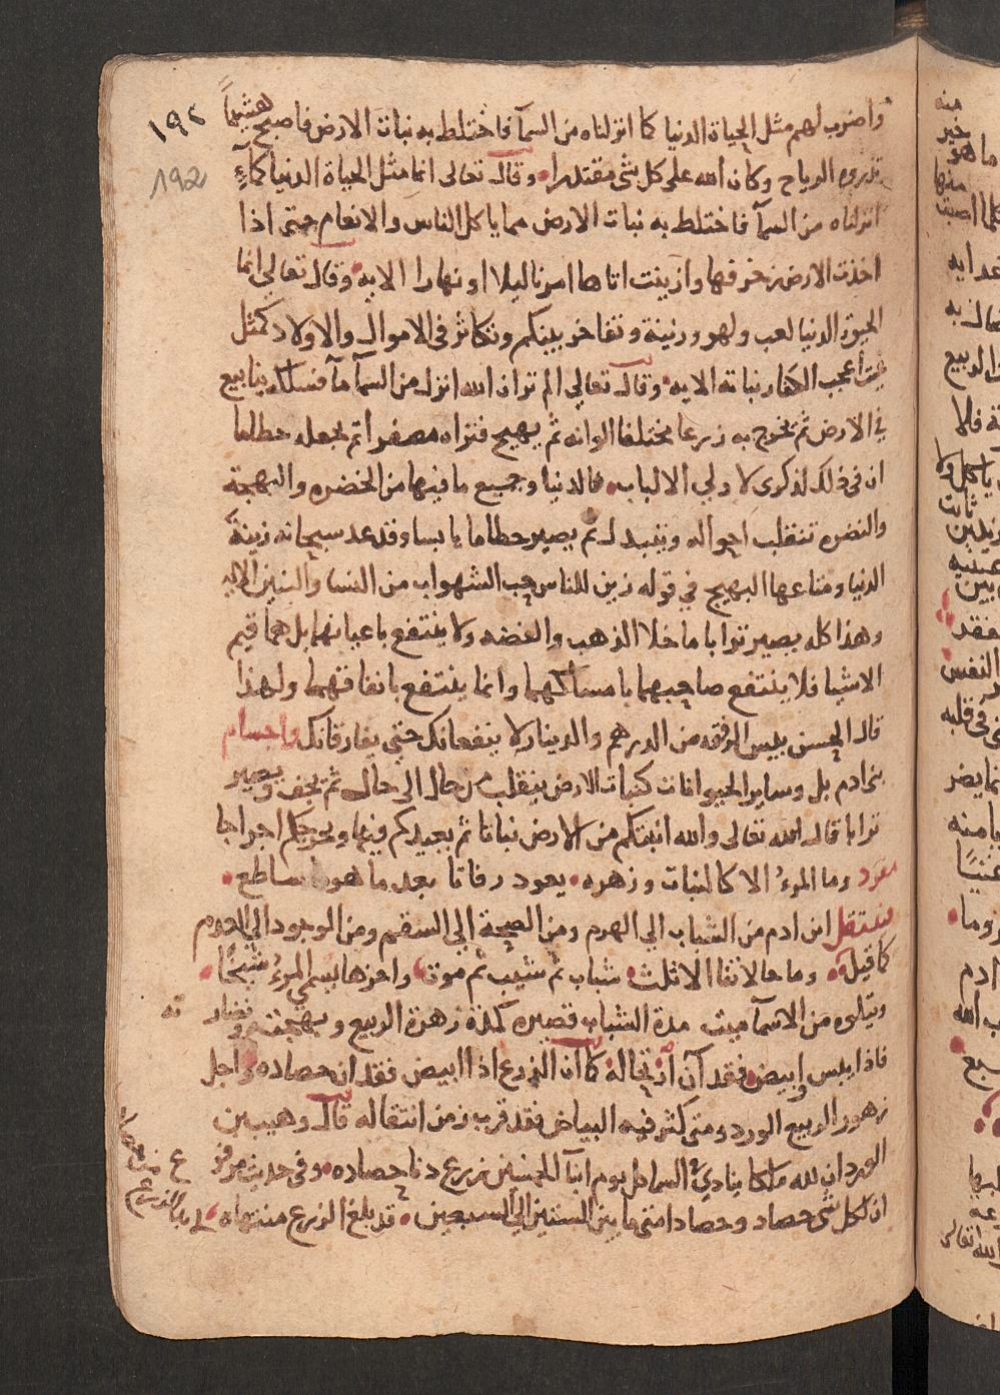 ١٩٢
192
واضرب لهم مثل الحياة الدنيا كما انزلناه من السمآ فاختلط به نبات الارض فاصبح هشيماً
تذروه الرياح وكان الله على كل شى مقتدرا وقال تعالى انما مثل الحياة الدنيا كمآءٍ
انزلناه من السمآ فاختلط به نبات الارض مما ياكل الناس والانعام حتى اذا
اخذت الارض زخرفها وازينت اتاها امرنا ليلا او نهارا الايه وقال تعالى انما
الحيوة الدنيا لعب ولهو وزينة وتفاخر بينكم وتكاثر فى الاموال والاولاد كمثل
غيث أعجب الكفار نباته الايه وقال تعالى الم تر ان الله انزل من السمآ مآ فسلكه ينابيع
في الارض ثم يخرج به زرعا مختلفا الوانه ثم يهيج فتراه مصفرا ثم يجعله حطاما
ان فى ذلك لذكرى لاولي الالباب فالدنيا وجميع ما فيها من الخضره والبهجة
والنضره تنقلب احواله ويتبدل ثم يصير حطاما يابسا وقد عد سبحانه زينة
الدنيا ومتاعها البهيج في قوله زين للناس حب الشهوات من النسا والبنين الايه
وهذا كله يصير ترابا ما خلا الذهب والفضه ولا ينتفع باعيانهما بل هما قيم
الاشيا فلا ينتفع صاحبهما بامساكهما وانما ينتفع بانفاقهما ولهذا
قال الحسن بيس الرفقه من الدرهم والدينار لا ينفعانك حتى يفارقانك واجسام
بنى ادم بل وساير الحيوانات كنبات الارض ينقلب من حال الى حال ثم يجف ويصير
ترابا قال الله تعالى والله انبتكم من الارض نباتا ثم يعيدكم فيها ويخرجكم اخراجا
مفرد وما المرءُ الا كالنبات وزهره يعود رفاتا بعد ما هو ساطع
فينتقل ابن ادم من الشباب الي الهرم ومن الصحة إلي السقم ومن الوجود الي العدم
كما قيل وما حالاتنا الا ثلث شباب ثم شيب ثم موت واخرها يسمي المرءُ شيخًا
ويتلوه من الاسمآ ميت مدة الشباب قصيره كمدة زهرة الربيع وبهجته ونضار ته
فاذا يبس وابيض فقد آن ارتحاله كما ان الزرع اذا ابيض فقد ان حصاده واجل
زهور الربيع الورد ومتى كثر فيه البياض فقد قرب زمن انتقاله قال وهيب بن
الورد ان لله ملكا ينادي في السما كل يوم ابنآ الخمسين زرع دنا حصاده وفى حديث مرفوع
ان لكل شى حصاد وحصاد امتى ما بين الستين الي السبعين قد يبلغ الزرع منتهاه